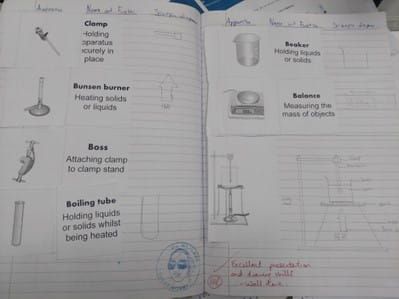 Apparatus Name and Function Scientific diagram
Clamp
Holding
apparatus
securely in
place
Bunsen burner
Heating solids
or liquids
Boss
Attaching clamp
to clamp stand
Boiling tube
Holding liquids
or solids whilst
being heated
Apparatus Name and Function Scientific diagram
Beaker
Holding liquids
or solids
Balance
Measuring the
mass of objects
Excellent presentation
and drawing skills
- Well done